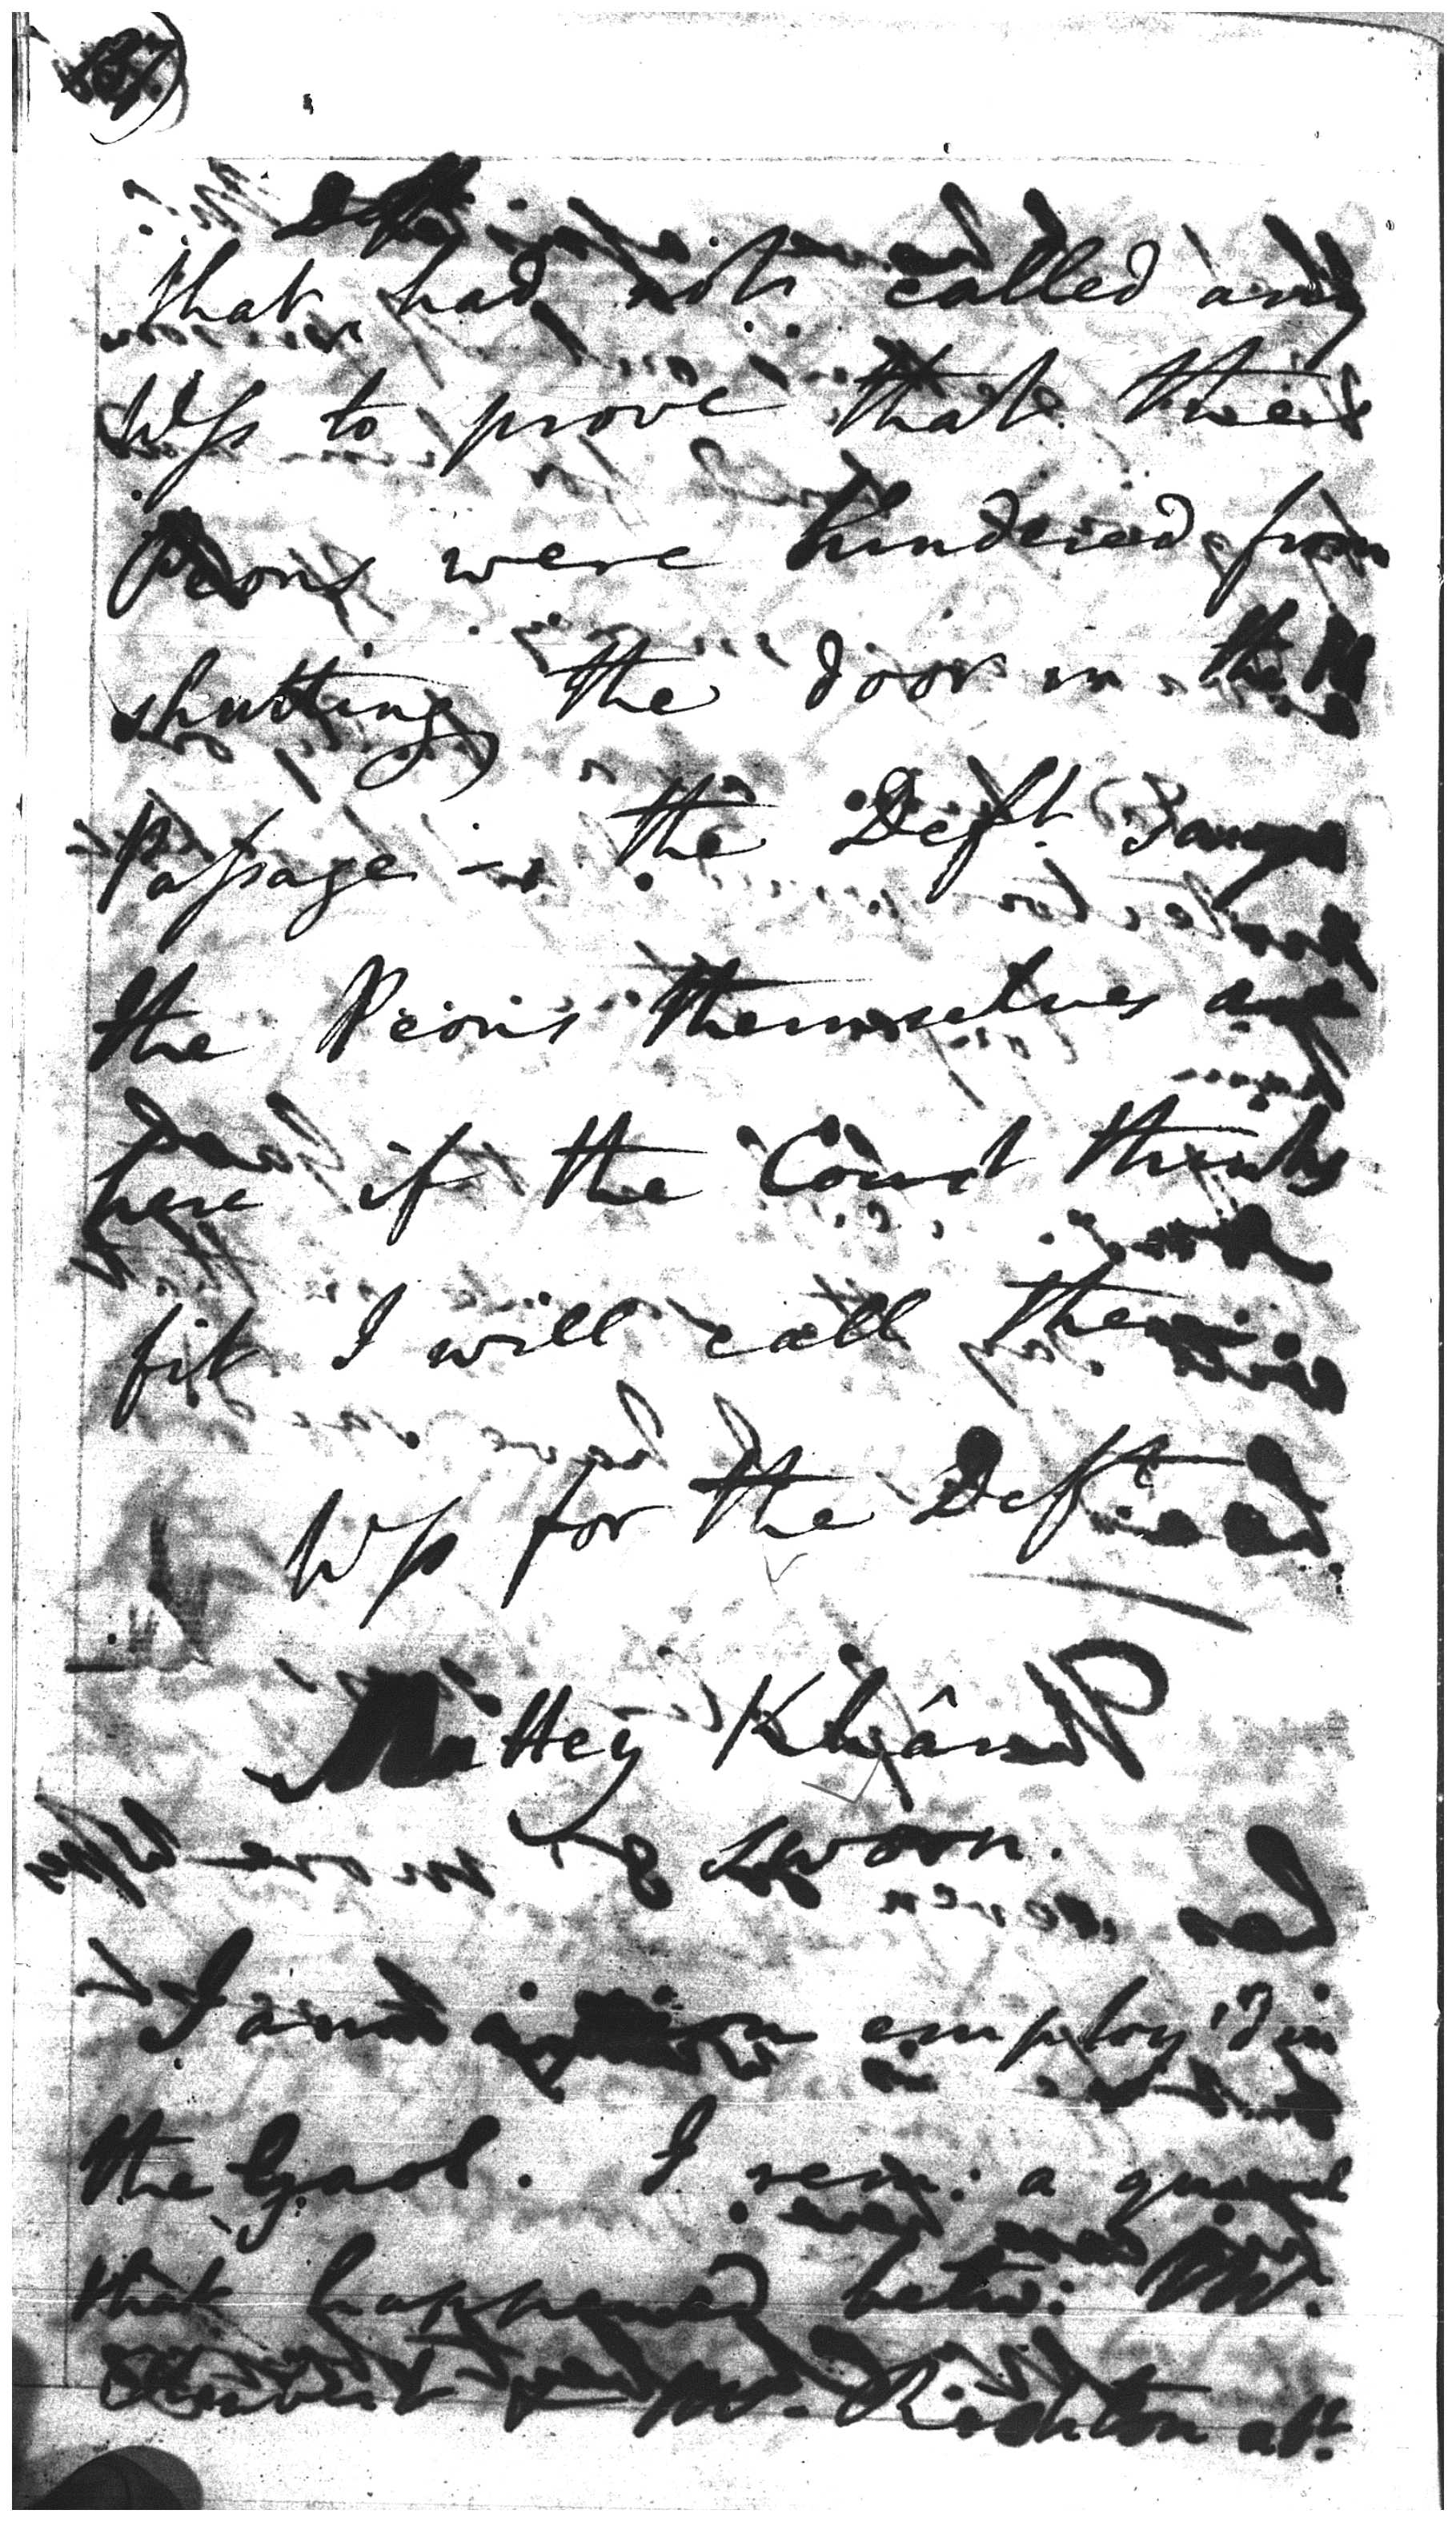 that had not called any
Wss to prove that their
Peons were hindered from
shutting the door in the
Passage in the Deft
the Peons themselves are
here if the Court thinks
fit I will call them
Wss for the Deft
Muttey Khân
sworn.
I am a employ'd in
the Gaol. I rem: a quarrel
that happened betw: Mr.
and Mr. Righton abt